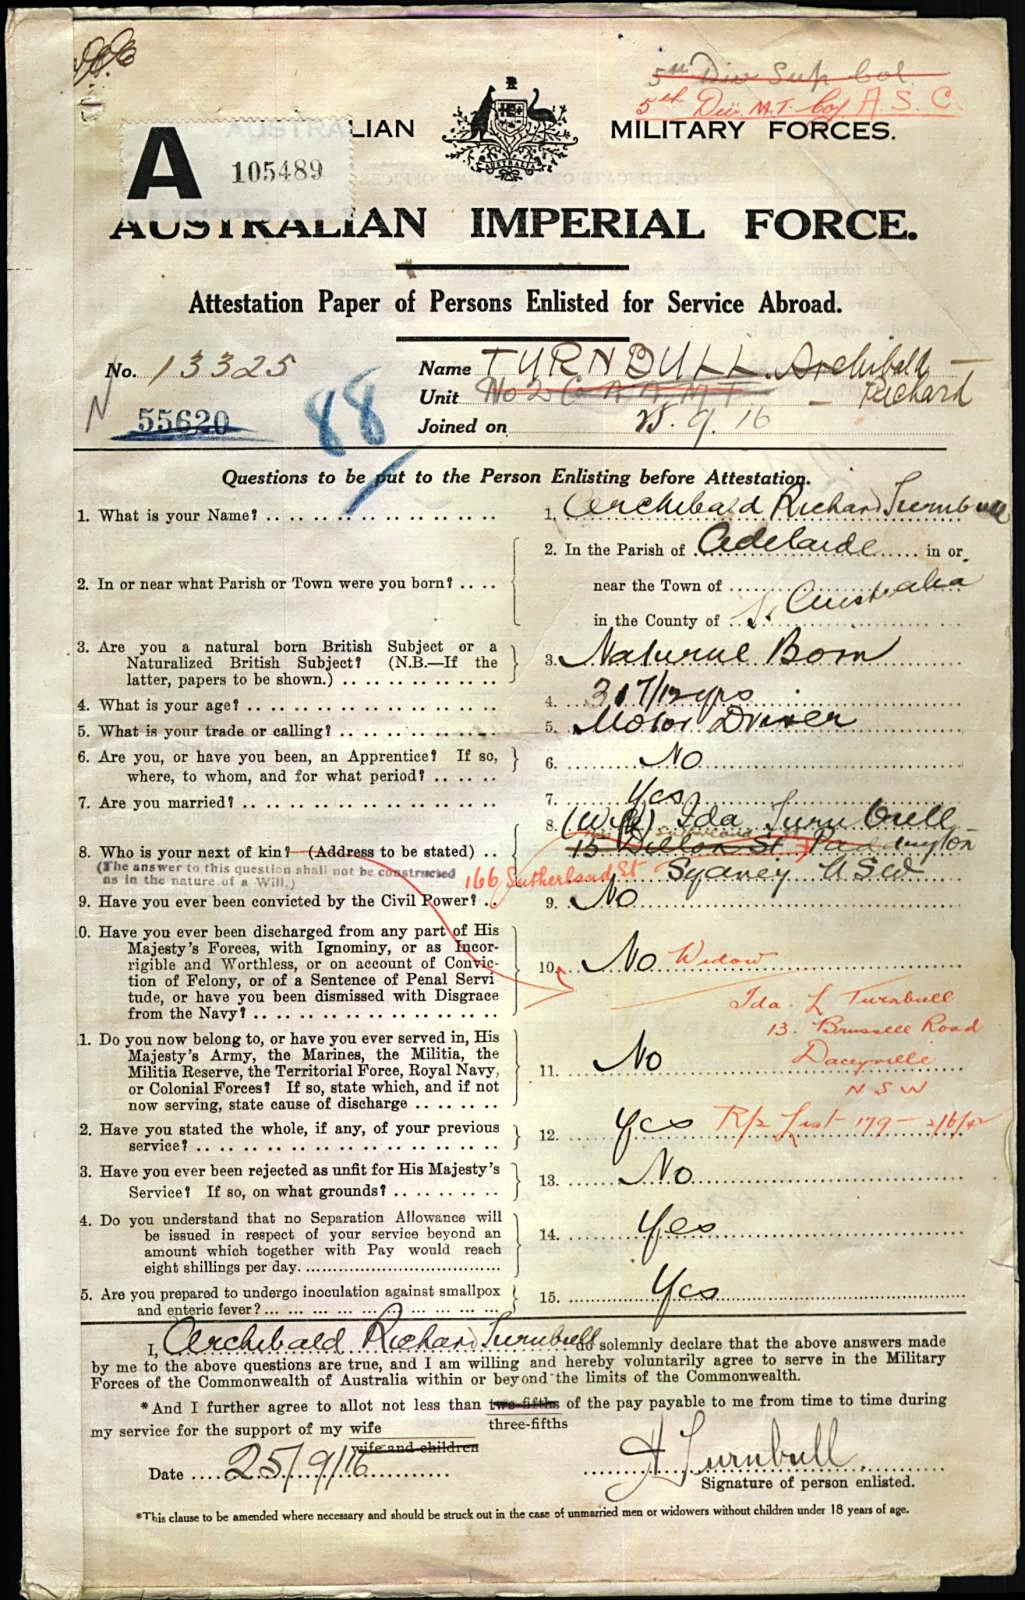 5th Div Sup Col.
5th Div. M.T. Coy A. S. C.
AUSTRALIAN MILITARY FORCES.
AUSTRALIA
A 105489
AUSTRALIAN IMPERIAL FORCE.
Attestation Paper of Persons Enlisted for Service Abroad.
No. 13325
Name TURNBULL. Archibald Richard
N 55620
88
Unit No 2 Co A A M T
Joined on 25.9.16
Questions to be put to the Person Enlisting before Attestation.
1. What is your Name? 1. Archibald Richard Turnbull
2. In or near what Parish or Town were you born? 2. In the Parish of Adelaide in or
near the Town of
in the County of S. Australia
3. Are you a natural born British Subject or a
Naturalized British Subject? (N.B.—If the
latter, papers to be shown.) 3. Natural Born
4. What is your age? 4. 31 7/12 yrs
5. What is your trade or calling? 5. Motor Driver
6. Are you, or have you been, an Apprentice? If so,
where, to whom, and for what period? 6. No
7. Are you married? 7. Yes
8. (Wife) Ida Turnbull
8. Who is your next of kin? (Address to be stated) 15 Dillon St Paddington
(The answer to this question shall not be constructed
as in the nature of a Will.)
166 Sutherland St Sydney NSW
9. Have you ever been convicted by the Civil Power? 9. No
0. Have you ever been discharged from any part of His
Majesty's Forces, with Ignominy, or as Incor-
rigible and Worthless, or on account of Convic-
tion of Felony, or of a Sentence of Penal Servi
tude, or have you been dismissed with Disgrace
from the Navy? 10. No
Widow
Ida. L Turnbull
13. Brussels Road
Daceyville
N S W
1. Do you now belong to, or have you ever served in, His
Majesty's Army, the Marines, the Militia, the
Militia Reserve, the Territorial Force, Royal Navy,
or Colonial Forces? If so, state which, and if not
now serving, state cause of discharge 11. No
2. Have you stated the whole, if any, of your previous
service? 12. Yes
R/2 List 179 - 2/6/42
3. Have you ever been rejected as unfit for His Majesty's
Service? If so, on what grounds? 13. No
4. Do you understand that no Separation Allowance will
be issued in respect of your service beyond an
amount which together with Pay would reach
eight shillings per day. 14. Yes
5. Are you prepared to undergo inoculation against smallpox
and enteric fever? 15. Yes
I, Archibald Richard Turnbull do solemnly declare that the above answers made
by me to the above questions are true, and I am willing and hereby voluntarily agree to serve in the Military
Forces of the Commonwealth of Australia within or beyond the limits of the Commonwealth.
*And I further agree to allot not less than two-fifths of the pay payable to me from time to time during
three-fifths
my service for the support of my wife
wife and children
Date 25/9/16
A Turnbull.
Signature of person enlisted.
*This clause to be amended where necessary and should be struck out in the case of unmarried men or widowers without children under 18 years of age.